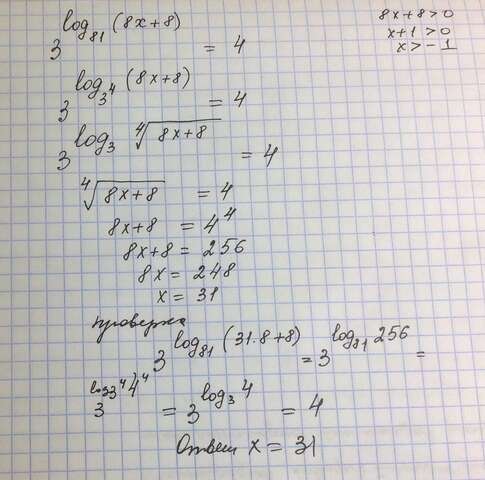 3^{log_{81}(8x+8)} = 4
8x+8>0
x+1>0
x>-1
3^{log_{3^4}(8x+8)} = 4
3^{log_3 \sqrt[4]{8x+8}} = 4
\sqrt[4]{8x+8} = 4
8x+8 = 4^4
8x+8 = 256
8x = 248
x = 31
проверка
3^{log_{81}(31·8+8)} = 3^{log_{81}256} =
3^{log_{3^4}4^4} = 3^{log_3 4} = 4
Ответ x = 31